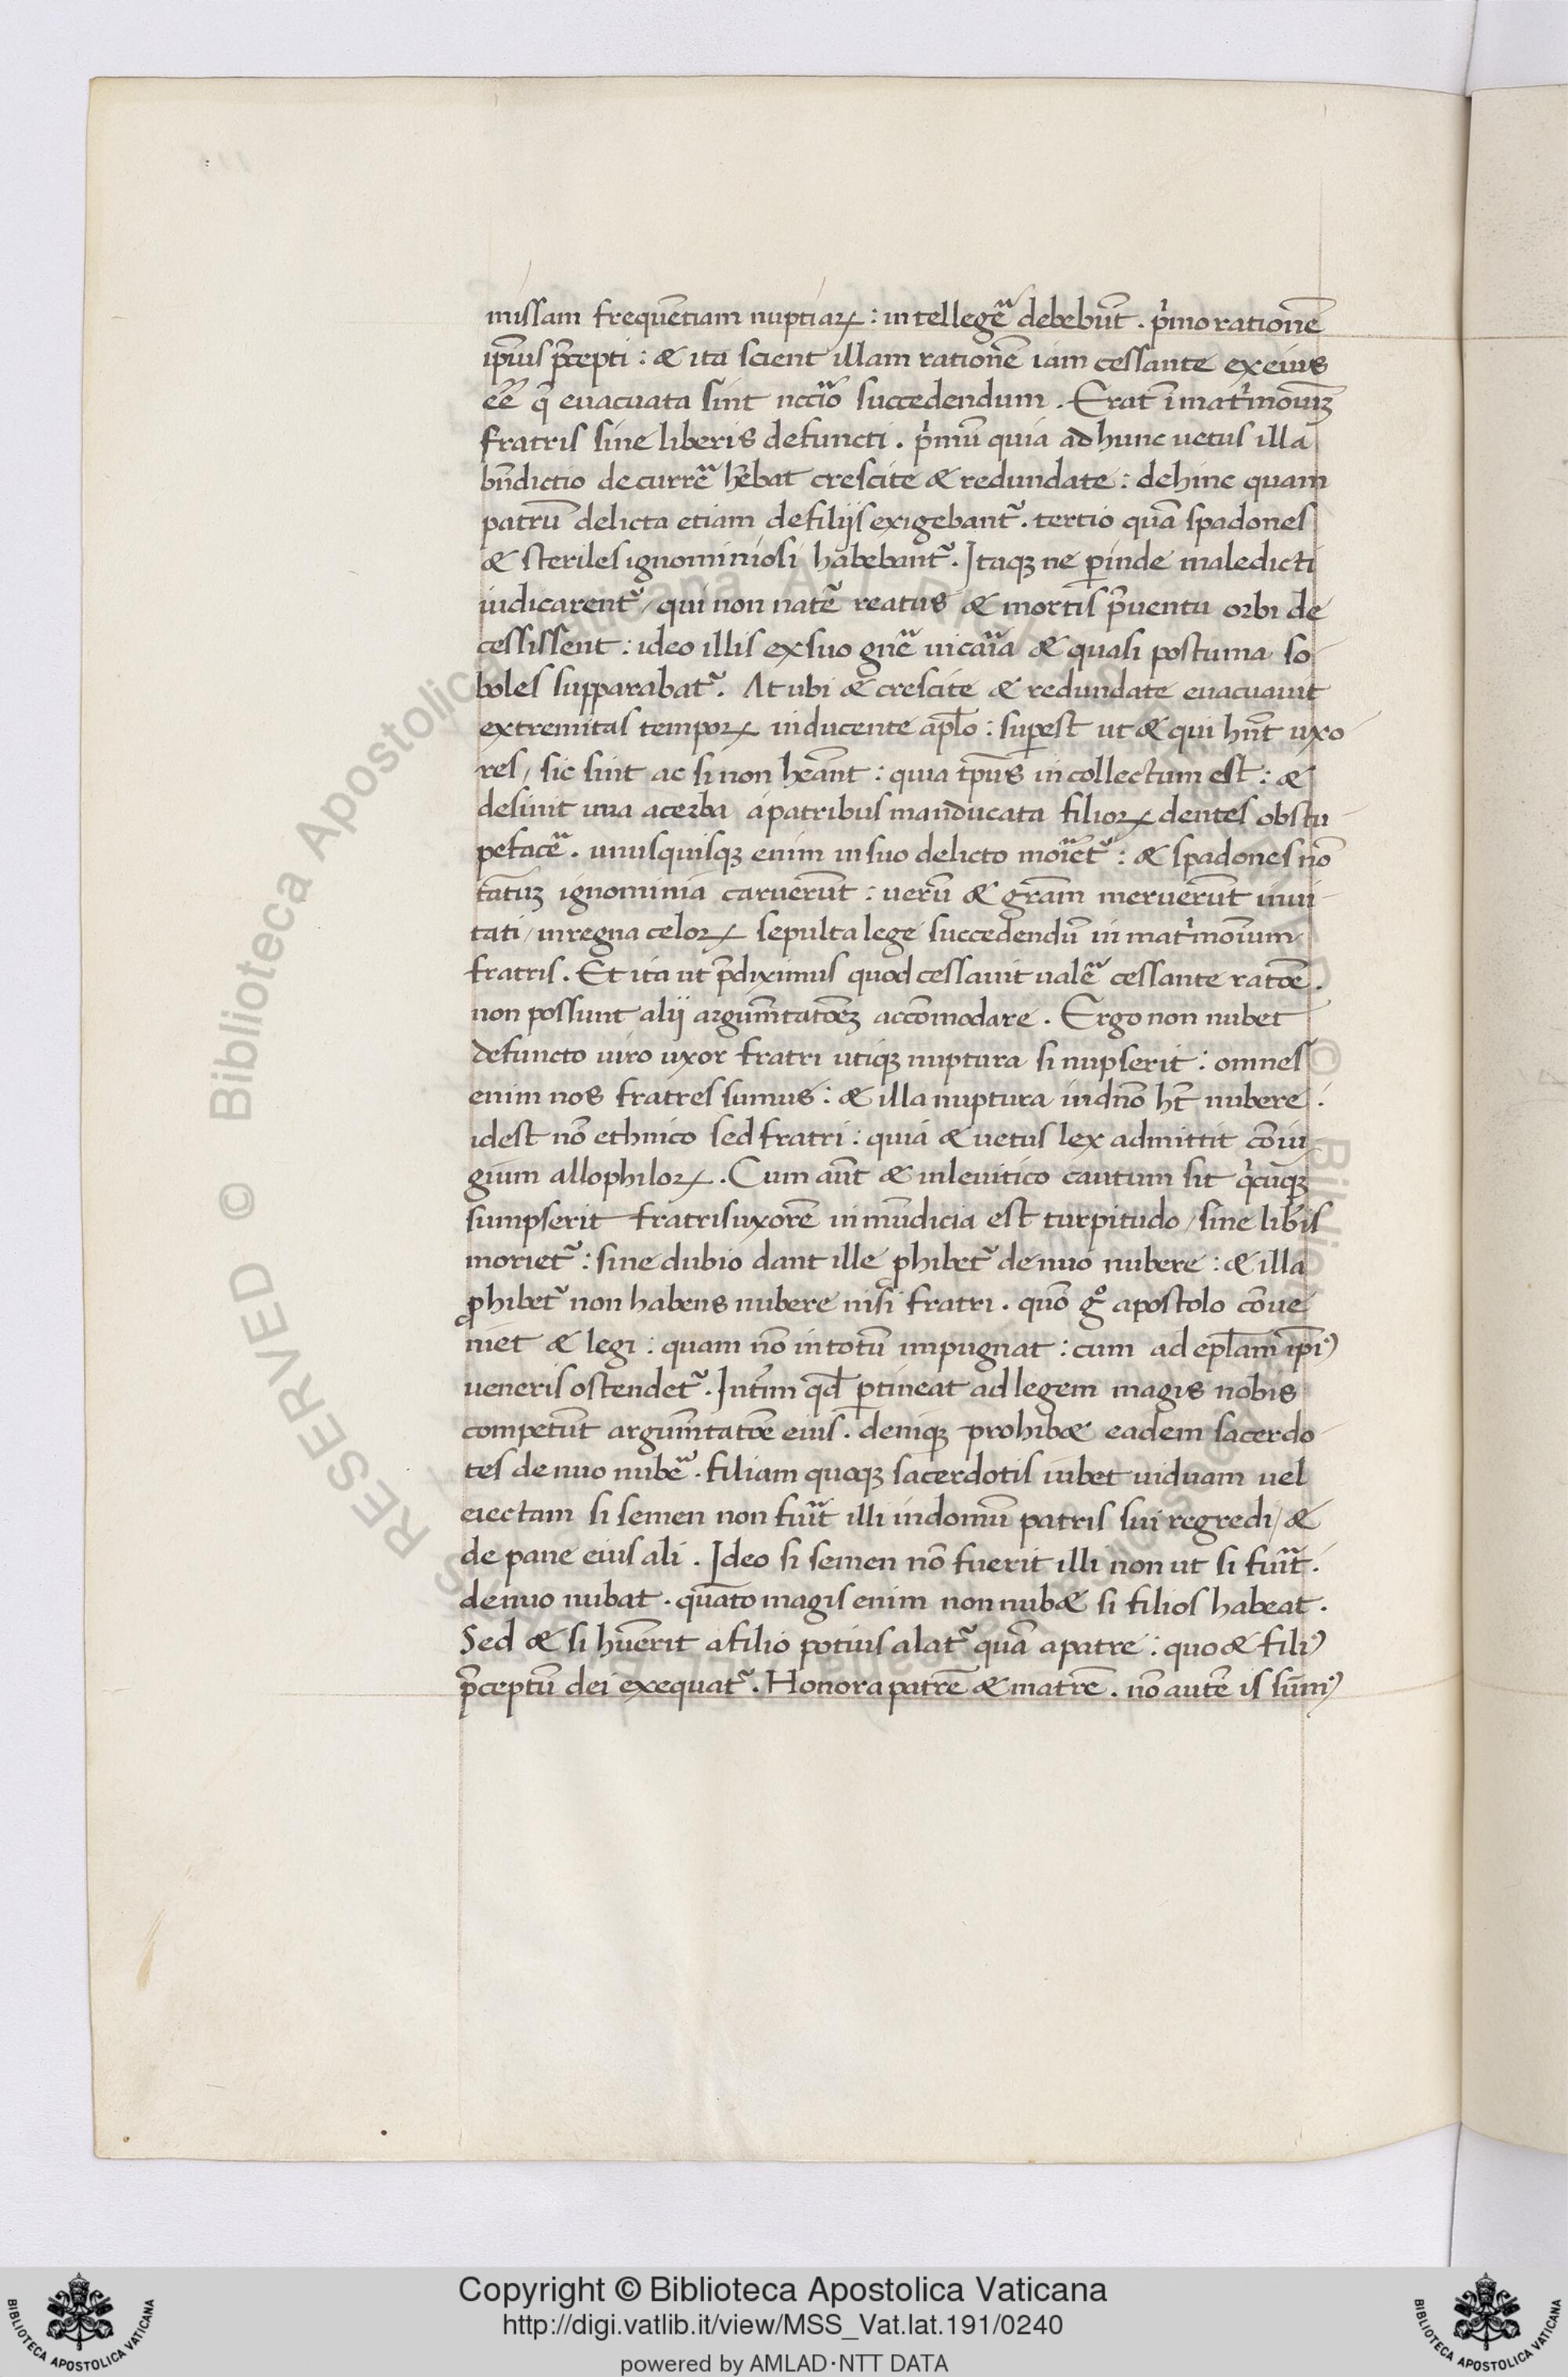 missam frequẽtiam nuptiaꝝ : intellegẽ debebũt . pͥmo rationẽ
ip̃ius p̃cepti : & ita scient illam rationẽ iam cessante ex eius
eẽ q̃ euacuata sint nccĩo succedendum . Erat ĩ matͥmoniuꝫ
fratris sine liberis defuncti . pͥmũ quia ad hunc uetus illa
bñdictio decurrẽ hẽbat crescite & redundate : dehinc quam
patrũ delicta etiam de filijs exigebantᷣ . tertio quã spadones
& steriles ignominiosi habebantᷣ . Itaqꝫ ne ꝑinde maledicti
iudicarentᷣ / qui non natẽ reatus & mortis p̃uentu orbi de
cessissent : ideo illis ex suo gñẽ uicaĩa & quasi postuma so
boles supparabatᷣ . At ubi & crescite & redundate euacuauit
extremitas tempoꝝ inducente apl̃o : suꝑest ut & qui hñt uxo
res / sic sint ac si non heãnt : quia tp̃us in collectum est : &
desinit uua acerba a patribus manducata filioꝝ dentes obstu
pefacẽ . unusquisqꝫ enim in suo delicto moĩetᷣ : & spadones nõ
tãtuꝫ ignominia caruerũt : uerũ & grãm meruerũt inui
tati / in regna celoꝝ sepulta lege succedendũ in matͥmoĩum
fratris . Et ita ut p̃diximus quod cessauit ualẽ cessante ratõe .
non possunt alij argum̃tatõeꝫ accõmodare . Ergo non nubet
defuncto uiro uxor fratri utiqꝫ nuptura si nupserit : omnes
enim nos fratres sumus : & illa nuptura in dño ht̃ nubere .
id est nõ ethnico sed fratri : quia & uetus lex admittit cõiu
gium allophiloꝝ . Cum aũt & in leuitico cautum sit qͥcũqꝫ
sumpserit fratris uxorẽ inmũdicia est turpitudo / sine lib̃is
morietᷣ : sine dubio dant ille ꝓhibetᷣ denuo nubere : & illa
ꝓhibetᷣ non habens nubere nisi fratri . quõ gͦ apostolo cõue
niet & legi : quam nõ in totũ impugnat : cum ad epl̃am ip̃iꝰ
ueneris ostendetᷣ . Int̃im qd̃ ꝑtineat ad legem magis nobis
competũt argum̃tatõe eius . deniqꝫ prohib& eadem sacerdo
tes denuo nubẽ . filiam quoqꝫ sacerdotis iubet uiduam uel
eiectam si semen non fuĩt illi in domũ patris sui regredi / &
de pane eius ali . Ideo si semen nõ fuerit illi non ut si fuĩt .
denuo nubat . quãto magis enim non nub& si filios habeat .
Sed & si hũerit a filio potius alatᷣ quã a patre : quo & filiꝰ
p̃ceptũ dei exequatᷣ . Honora patrẽ & matrẽ . nõ autẽ is sum̃ꝰ
Copyright © Biblioteca Apostolica Vaticana
http://digi.vatlib.it/view/MSS_Vat.lat.191/0240
powered by AMLAD·NTT DATA
BIBLIOTECA APOSTOLICA VATICANA
BIBLIOTECA APOSTOLICA VATICANA